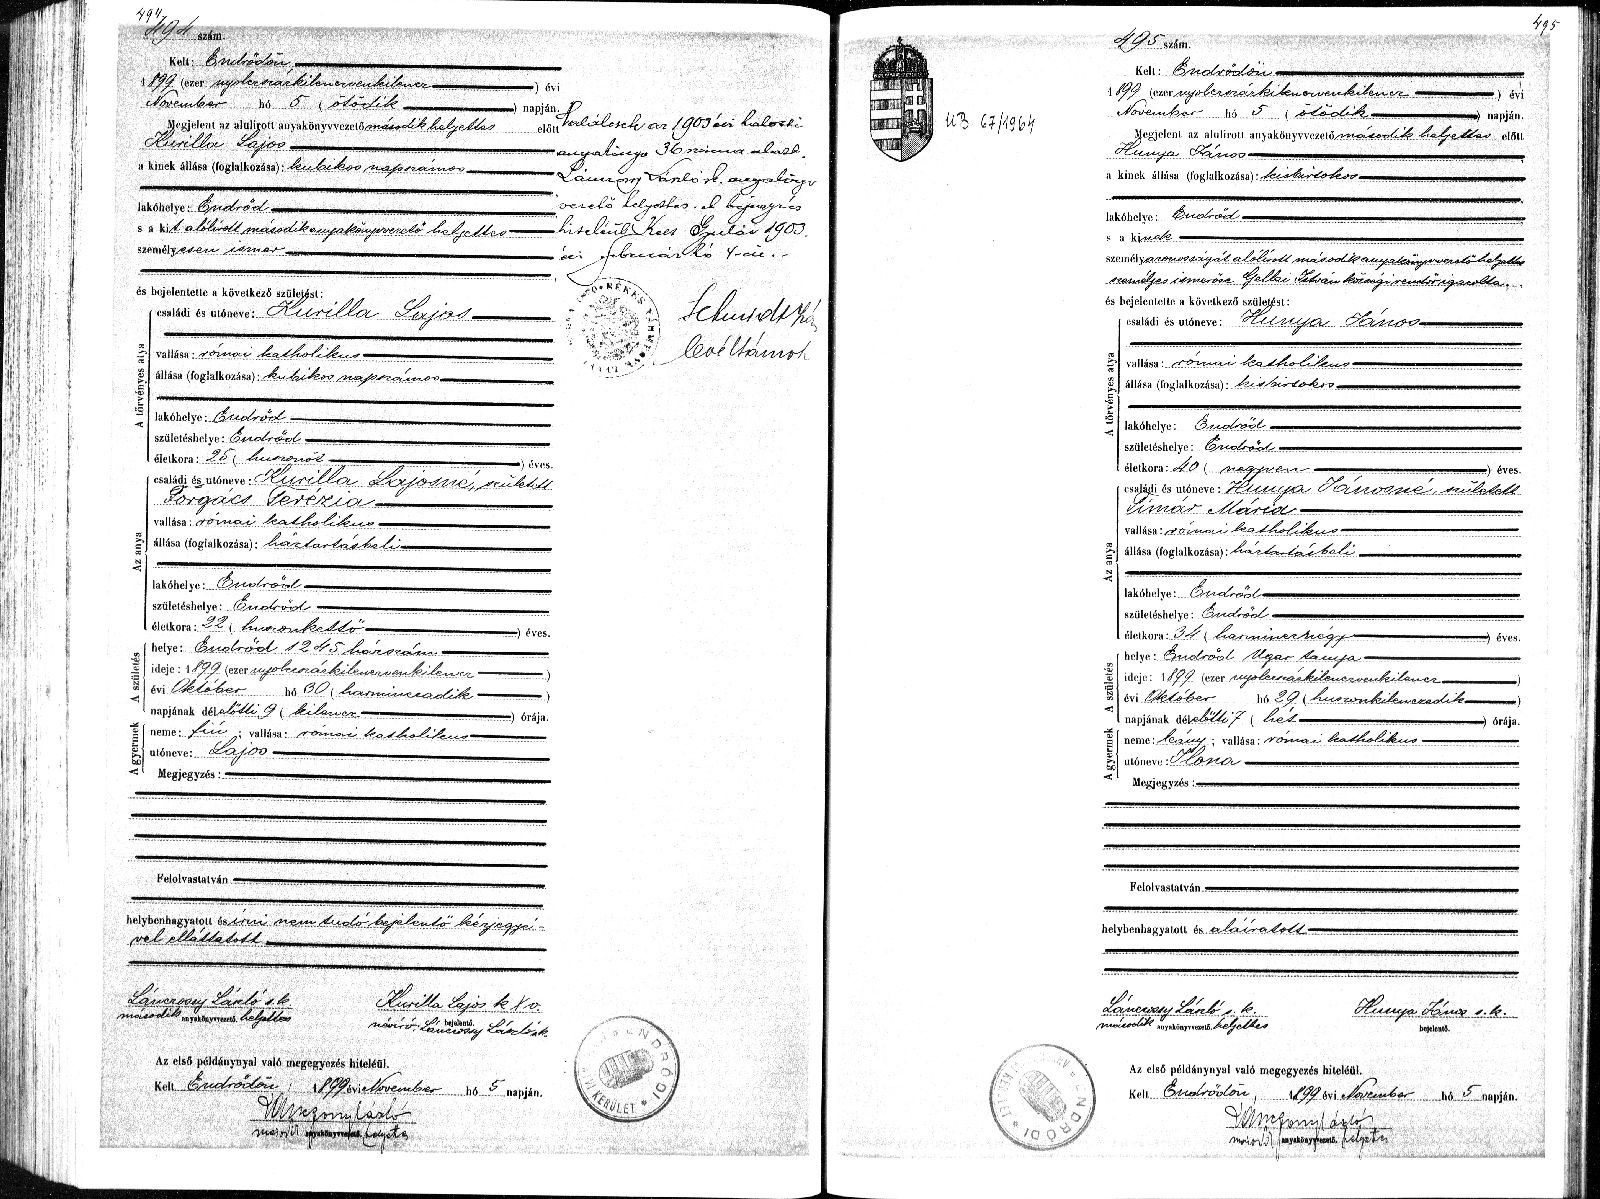 494
494 szám.
Kelt: Endrődön,
1899 (ezer nyolczszázkilenczvenkilencz) évi
November hó 5 (ötödik) napján.
Megjelent az alulirott anyakönyvvezető második helyettes előtt
Kurilla Lajos
a kinek állása (foglalkozása): kubikos napszámos
lakóhelye: Endrőd
s a kit alólirott második anyakönyvvezető helyettes
személyesen ismer
és bejelentette a következő születést:
A törvényes atya
családi és utóneve: Kurilla Lajos
vallása: római katholikus
állása (foglalkozása): kubikos napszámos
lakóhelye: Endrőd
születéshelye: Endrőd
életkora: 25 (huszonöt) éves.
Az anya
családi és utóneve: Kurilla Lajosné, született
Forgács Terézia
vallása: római katholikus
állása (foglalkozása): háztartásbeli
lakóhelye: Endrőd
születéshelye: Endrőd
életkora: 22 (huszonkettő) éves.
A születés
helye: Endrőd 1245 házszám
ideje: 1899 (ezer nyolczszázkilenczvenkilencz)
évi Október hó 30 (harminczadik)
napjának délelőtti 9 (kilencz) órája.
A gyermek
neme: fiú; vallása: római katholikus
utóneve: Lajos
Megjegyzés:
Felolvastatván
helybenhagyatott és irni nem tudó bejelentő kézjegyé-
vel elláttatott
Lánczossy László s.k.
második anyakönyvvezető. helyettes
Kurilla Lajos k X v.
bejelentő.
névíró: Lánczossy László sk.
Az első példánynyal való megegyezés hiteléül.
Kelt Endrődön, 1899 évi November hó 5 napján.
anyakönyvvezető. helyettes
ENDRŐDI
KERÜLET
az 1903 évi halotti
anyakönyv 36 száma alatt.
Lánczossy László s.k. anyakönyv
vezető helyettes. A bejegyzés
hiteléül Kelt Gyulán 1903.
évi február hó 4-én.
BÉKÉS VÁRMEGYE
Schmidt
495
495 szám.
UB 67/1964
Kelt: Endrődön
1899 (ezer nyolczszázkilenczvenkilencz) évi
November hó 5 (ötödik) napján.
Megjelent az alulirott anyakönyvvezető második helyettes előtt
Hunya János
a kinek állása (foglalkozása): kisbirtokos
lakóhelye: Endrőd
s a kinek
személyazonosságát alólirott második anyakönyvvezető helyettes
személyes ismerőse Gellai István községi rendőr igazolta
és bejelentette a következő születést:
A törvényes atya
családi és utóneve: Hunya János
vallása: római katholikus
állása (foglalkozása): kisbirtokos
lakóhelye: Endrőd
születéshelye: Endrőd
életkora: 40 (negyven) éves.
Az anya
családi és utóneve: Hunya Jánosné, született
Timár Mária
vallása: római katholikus
állása (foglalkozása): háztartásbeli
lakóhelye: Endrőd
születéshelye: Endrőd
életkora: 34 (harmincznégy) éves.
A születés
helye: Endrőd Ugar tanya
ideje: 1899 (ezer nyolczszázkilenczvenkilencz)
évi Október hó 29 (huszonkilenczedik)
napjának délelőtti 7 (hét) órája.
A gyermek
neme: leány; vallása: római katholikus
utóneve: Ilona
Megjegyzés:
Felolvastatván
helybenhagyatott és aláiratott
Lánczossy László s. k.
második anyakönyvvezető. helyettes
Hunya János s. k.
bejelentő.
Az első példánynyal való megegyezés hiteléül.
Kelt Endrődön, 1899 évi November hó 5 napján.
anyakönyvvezető. helyettes
ENDRŐDI